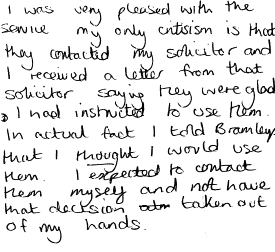 I was very pleased with the
service my only critisism is that
they contacted my solicitor and
I received a letter from that
solicitor saying they were glad
I had instructed to use them.
In actual fact I told Bramleys
that I thought I would use
them. I expected to contact
them myself and not have
that decision taken out
of my hands.